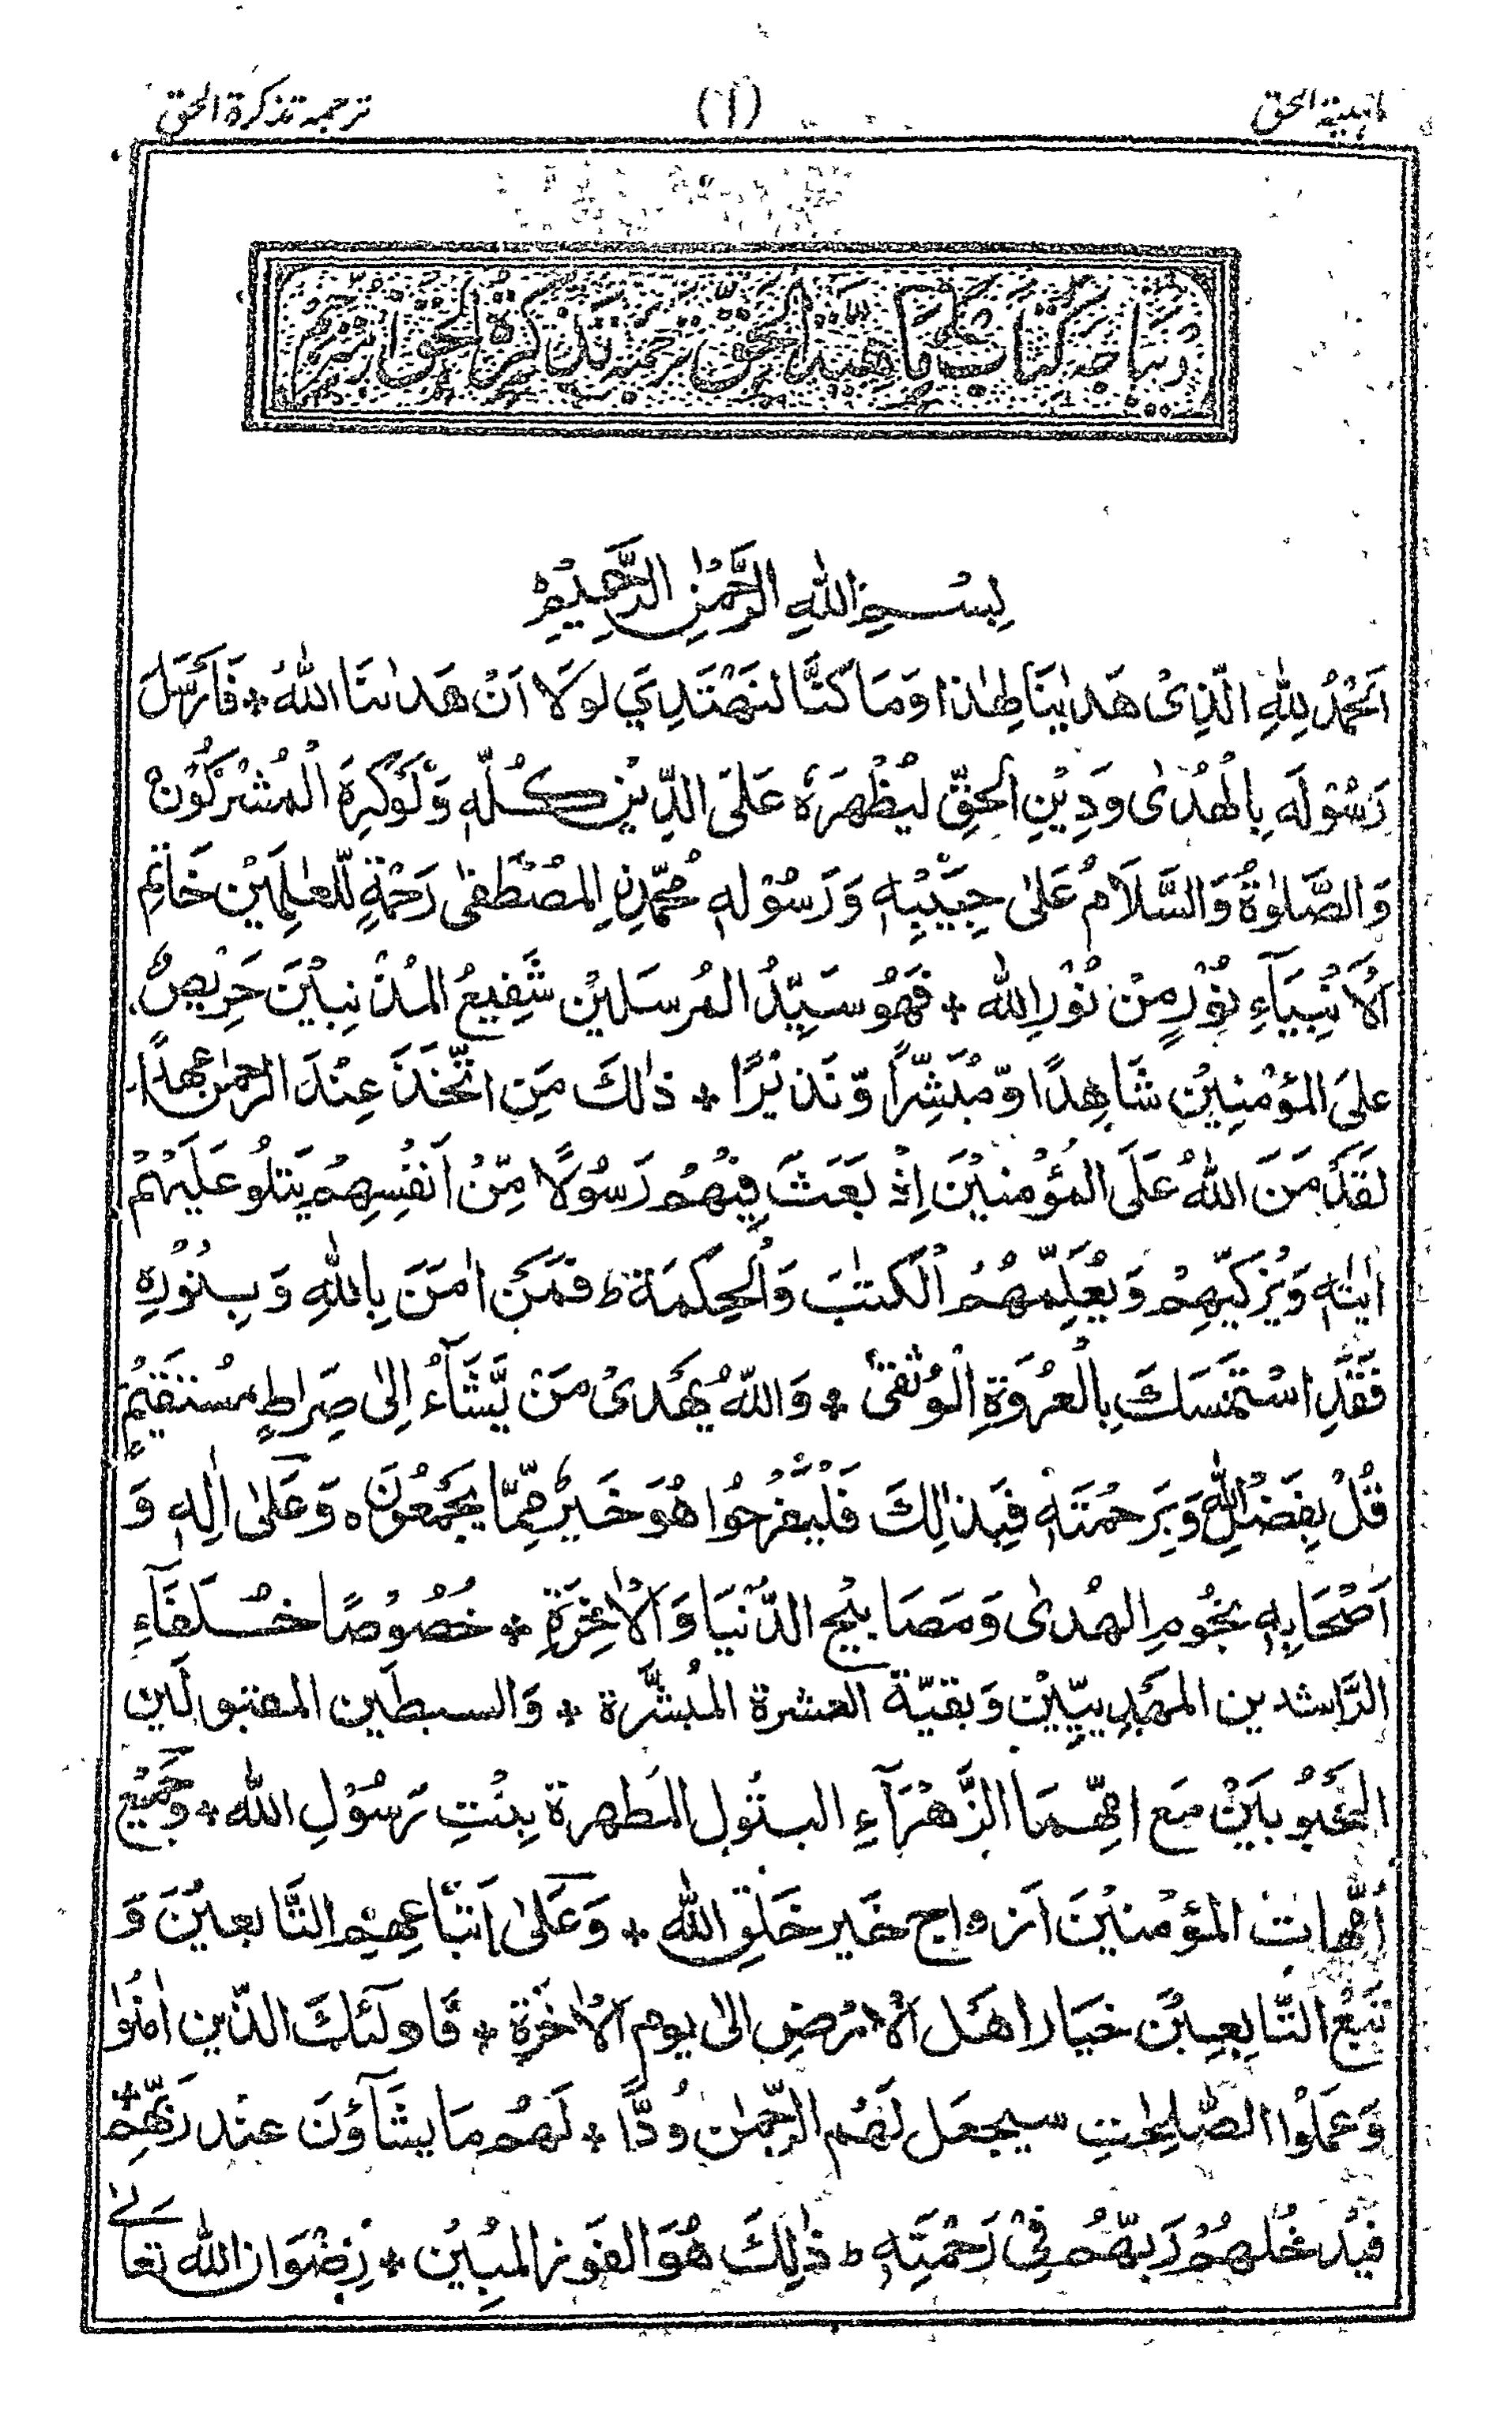 ماہیۃ الحق (۱) ترجمہ تذکرۃ الحق
دیباجہ کتاب ماھیۃ الحق ترجمہ تذکرۃ الحق از مترجم
بِسْمِ اللهِ الرَّحْمٰنِ الرَّحِيْمِ
اَلْحَمْدُ لِلّٰهِ الَّذِىْ هَدٰىنَا لِهٰذَا وَمَا كُنَّا لِنَهْتَدِيَ لَوْلَا اَنْ هَدٰىنَا اللهُ ÷ فَاَرْسَلَ
رَسُوْلَه بِالْهُدٰى وَدِيْنِ الْحَقِّ لِيُظْهِرَهٗ عَلَى الدِّيْنِ كُلِّهٖ وَلَوْكَرِهَ الْمُشْرِكُوْنَ
وَالصَّلٰوةُ وَالسَّلَامُ عَلٰى حَبِيْبِهٖ وَرَسُوْلِهٖ مُحَمَّدِنِ الْمُصْطَفٰى رَحْمَةٍ لِّلْعٰلَمِيْنَ خَاتِمِ
الْاَنْبِيَآءِ نُوْرٍ مِنْ نُوْرِ اللهِ ÷ فَهُوَ سَيِّدُ الْمُرْسَلِيْنَ شَفِيْعُ الْمُذْنِبِيْنَ حَرِيْصٌ
عَلَى الْمُؤْمِنِيْنَ شَاهِدًا وَّمُبَشِّرًا وَّنَذِيْرًا ÷ ذٰلِكَ مَنِ اتَّخَذَ عِنْدَ الرَّحْمٰنِ عَهْدًا
لَقَدْ مَنَّ اللهُ عَلَى الْمُؤْمِنِيْنَ اِذْ بَعَثَ فِيْهِمْ رَسُوْلًا مِّنْ اَنْفُسِهِمْ يَتْلُو عَلَيْهِمْ
اٰيٰتِهٖ وَيُزَكِّيْهِمْ وَيُعَلِّمُهُمُ الْكِتٰبَ وَالْحِكْمَةَ ط فَمَنْ اٰمَنَ بِاللهِ وَبِنُوْرِهٖ
فَقَدِ اسْتَمْسَكَ بِالْعُرْوَةِ الْوُثْقٰى ÷ وَاللهُ يَهْدِىْ مَنْ يَّشَآءُ اِلٰى صِرَاطٍ مُسْتَقِيْمٍ
قُلْ بِفَضْلِ اللهِ وَبِرَحْمَتِهٖ فَبِذَالِكَ فَلْيَفْرَحُوا هُوَ خَيْرٌ مِّمَّا يَجْمَعُوْنَ ہ وَعَلٰى اٰلِهٖ وَ
اَصْحَابِهٖ نُجُومِ الْهُدٰى وَمَصَابِيْحِ الدُّنْيَا وَالْاٰخِرَةِ ÷ خُصُوْصًا خُلَفَآءِ
الرَّاشدين المَهْدِيِّيْنَ وَبَقِيَّة العشرة المُبَشَّرة ÷ وَالسبطَين المقبولَين
المَحْبُوْبَيْنَ مَع اُمِّهِمَا الزَّهْرَآءِ البتُولِ المُطهرة بِنْتِ رَسُوْلِ اللهِ ÷ وَجَمِيْعِ
اُمَّهاتِ المُؤمنيْنَ اَزواج خَير خَلْقِ اللهِ ÷ وَعَلٰى اَتْبَاعِهِمْ التَّابعيْنَ وَ
تَبْعِ التَّابِعِيْنَ خيَار اهَل الْاَرْضِ الٰى يوم الْاٰخرَةِ ÷ فَاولٰئكَ الذّين اٰمَنُوْا
وَعَمِلُوْا الصّٰلِحٰتِ سيجعَل لَهُم الرَّحْمٰن وُدًّا ÷ لَهُم مَا يشَآؤنَ عِنْد رَبِّهِمْ ÷
فيُدْخلُهُمْ رَبُّهُمْ فِىْ رَحْمَتِهٖ ط ذٰلِكَ هُوَ الفَوز المُبِيْنِ ÷ رِضْوَان الله تعَالےٰ